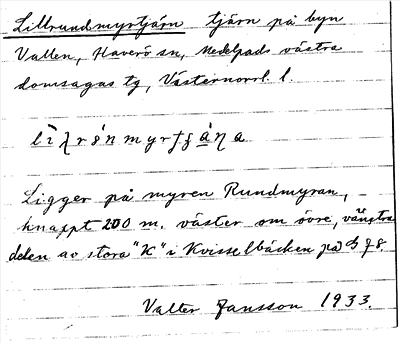 Lillrundmyrtjärn tjärn på byn
Vallen, Haverö sn, Medelpads västra
domsagas tg, Västernorrl. l.
Ligger på myren Rundmyran,
knappt 200 m. väster om övre, västra
delen av stora "K" i Kvisselbäcken på
Valter Jansson 1933.